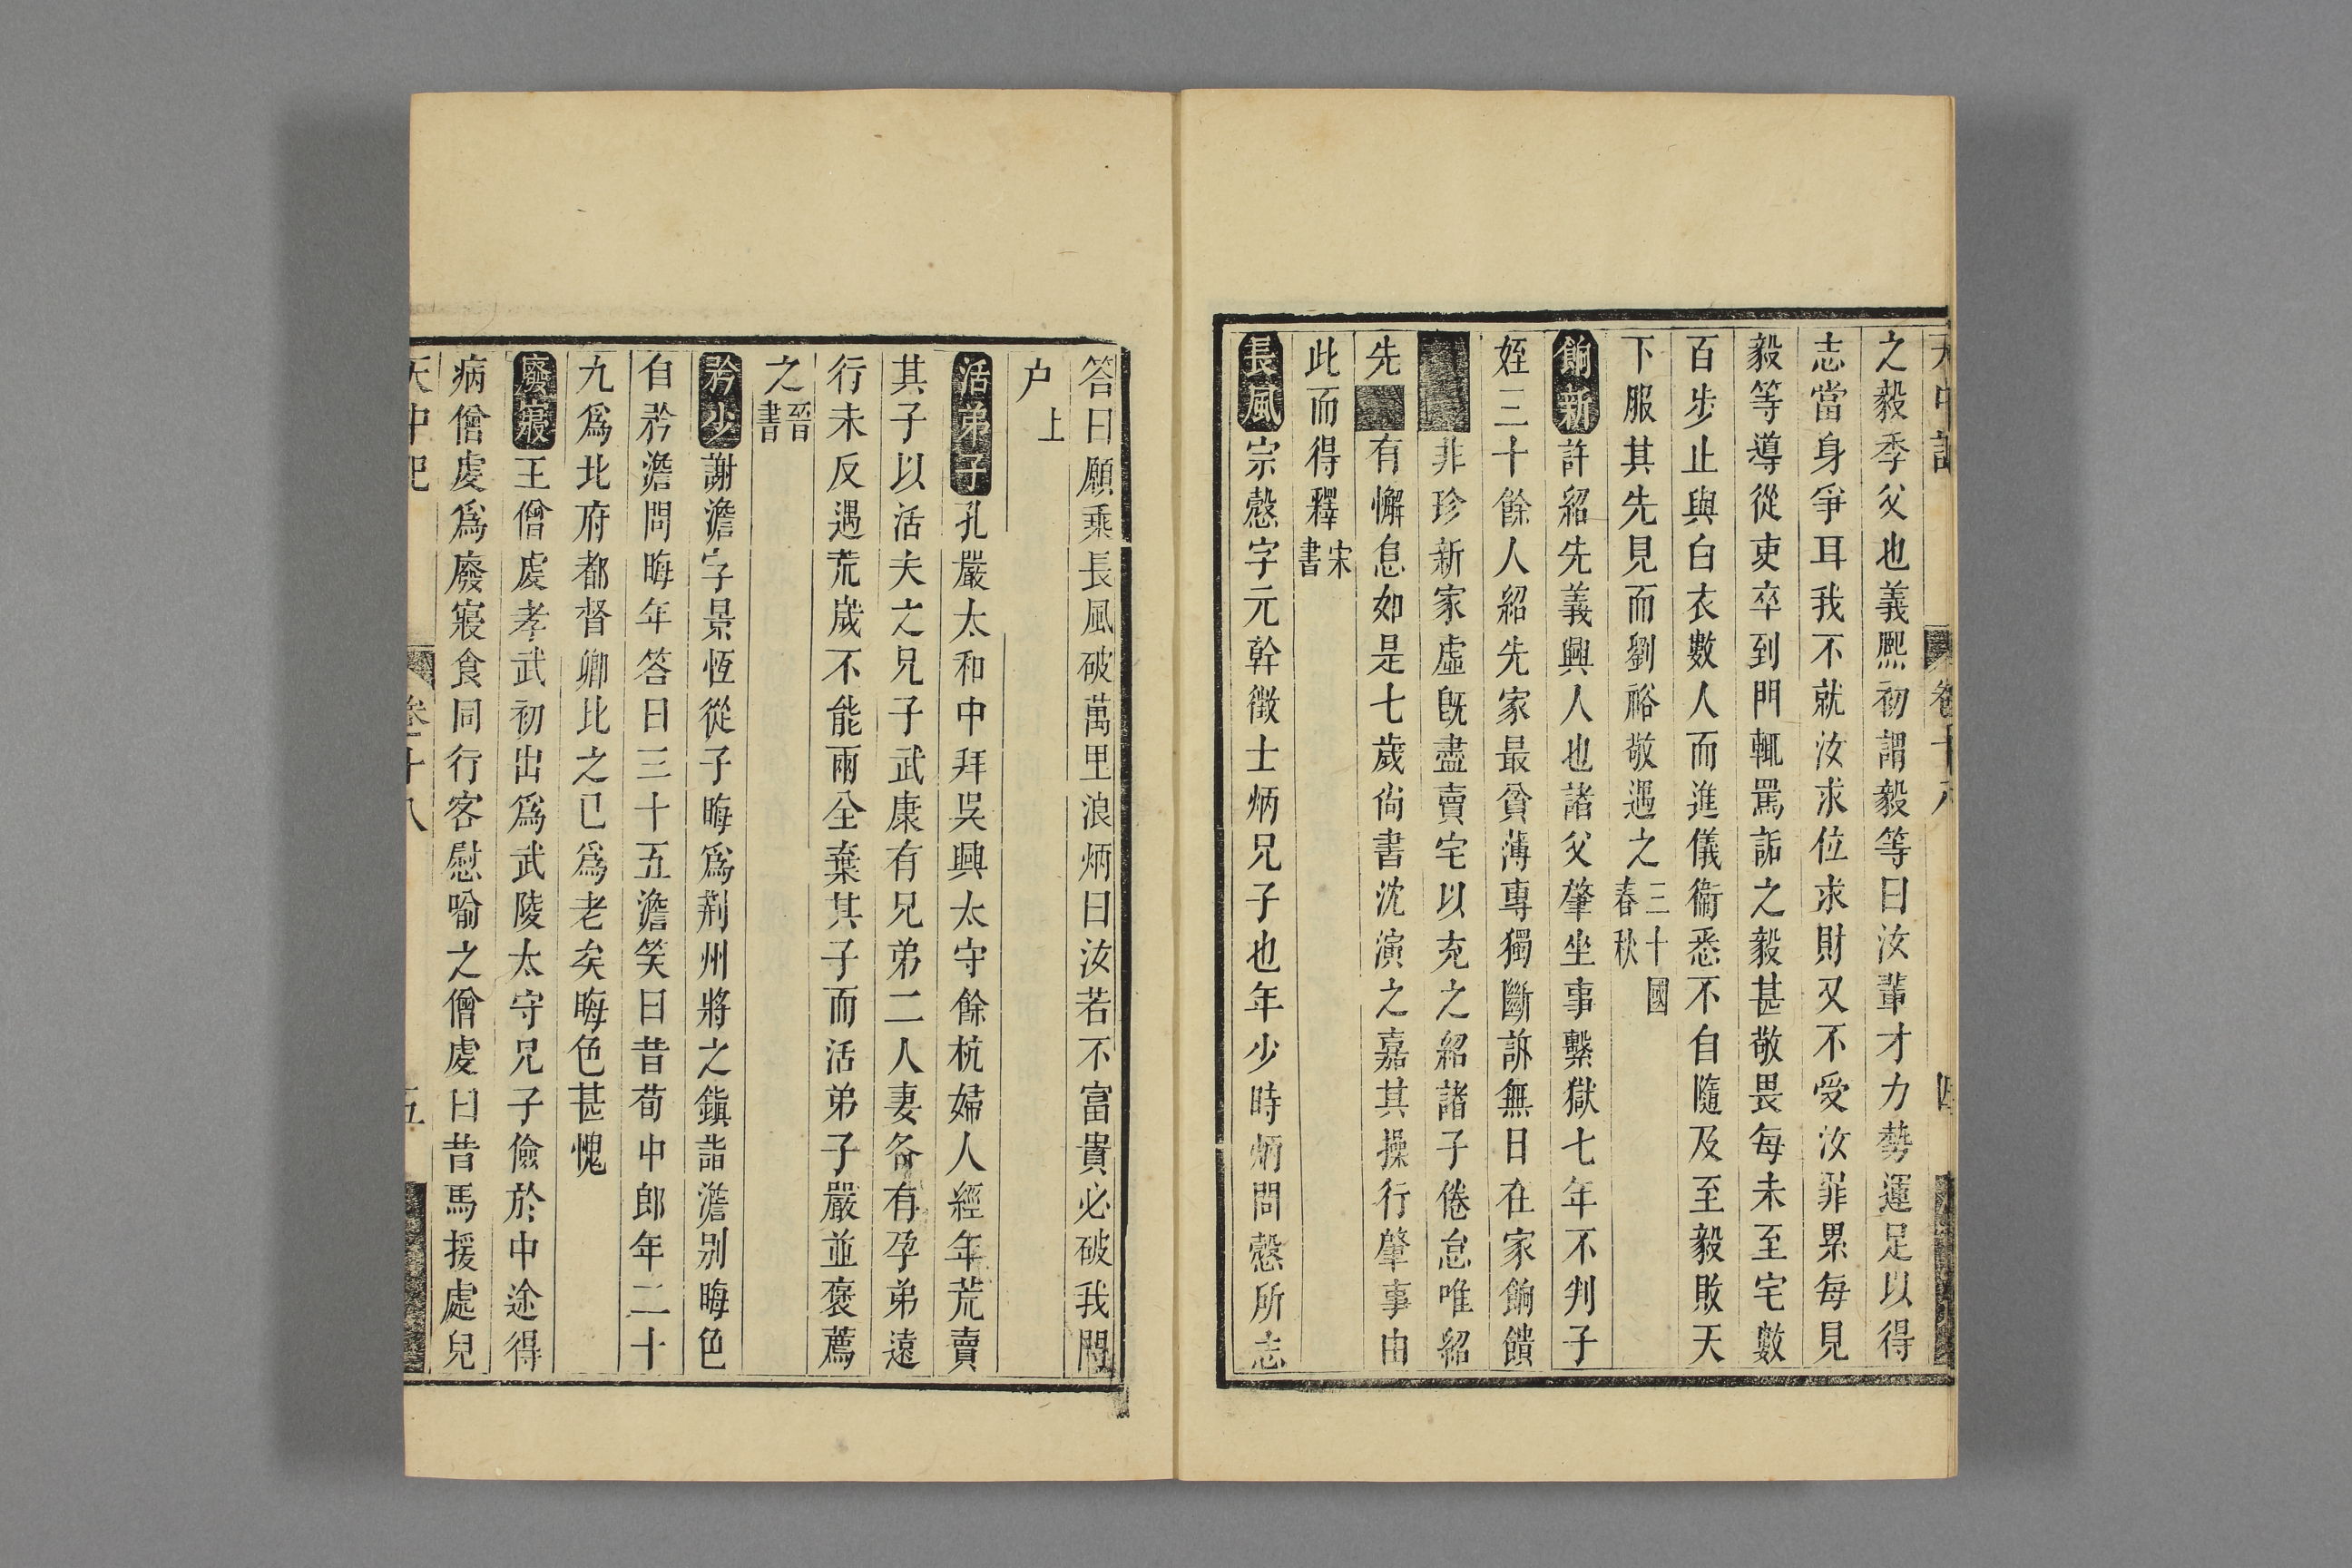 之毅季父也義熈初謂毅等曰汝軰才力勢運足以得
志當身爭耳我不就汝求位求財又不受汝罪累每見
毅等導從吏卒到門輒罵詬之毅甚敬畏每未至宅數
百步止與白衣數人而進儀衞悉不自隨及至毅敗天
下服其先見而劉裕敬遇之三十國春秋
餉新許紹先義興人也諸父肇坐事繫獄七年不判子
姪三十餘人紹先家最貧薄專獨斷訴無日在家餉饋
非珍新家虛旣盡賣宅以充之紹諸子倦怠唯紹
先有懈息如是七歲尙書沈演之嘉其操行肇事由
此而得釋宋書
長風宗慤字元幹徵士炳兄子也年少時炳問慤所志
答曰願乘長風破萬里浪炳曰汝若不富貴必破我門
户上
活弟子孔嚴太和中拜吳興太守餘杭婦人經年荒賣
其子以活夫之兄子武康有兄弟二人妻各有孕弟遠
行未反遇荒歲不能兩全棄其子而活弟子嚴並褒薦
之晉書
矜少謝澹字景恆從子晦爲荆州將之鎭詣澹别晦色
自矜澹問晦年答曰三十五澹笑曰昔荀中郎年二十
九爲北府都督卿比之已爲老矣晦色甚愧
廢寢王僧虔孝武初出爲武陵太守兄子儉於中途得
病僧虔爲廢寢食同行客慰喻之僧虔曰昔馬援處兒
天中記 卷十八 五